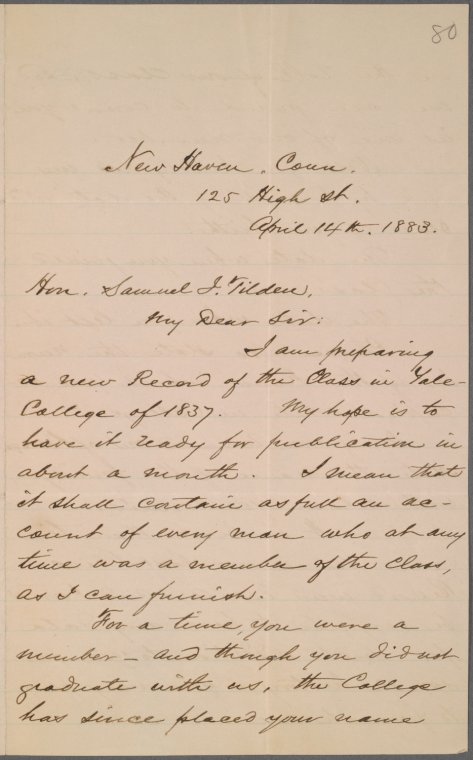 80
New Haven. Conn.
125 High St.
April 14th. 1883.
Hon. Samuel J. Tilden,
My Dear Sir:
I am preparing
a new Record of the Class in Yale-
College of 1837. My hope is to
have it ready for publication in
about a month. I mean that
it shall contain as full an ac-
count of every man who at any
time was a member of the Class,
as I can furnish.
For a time you were a
member - and though you did not
graduate with us, the College
has since placed your name